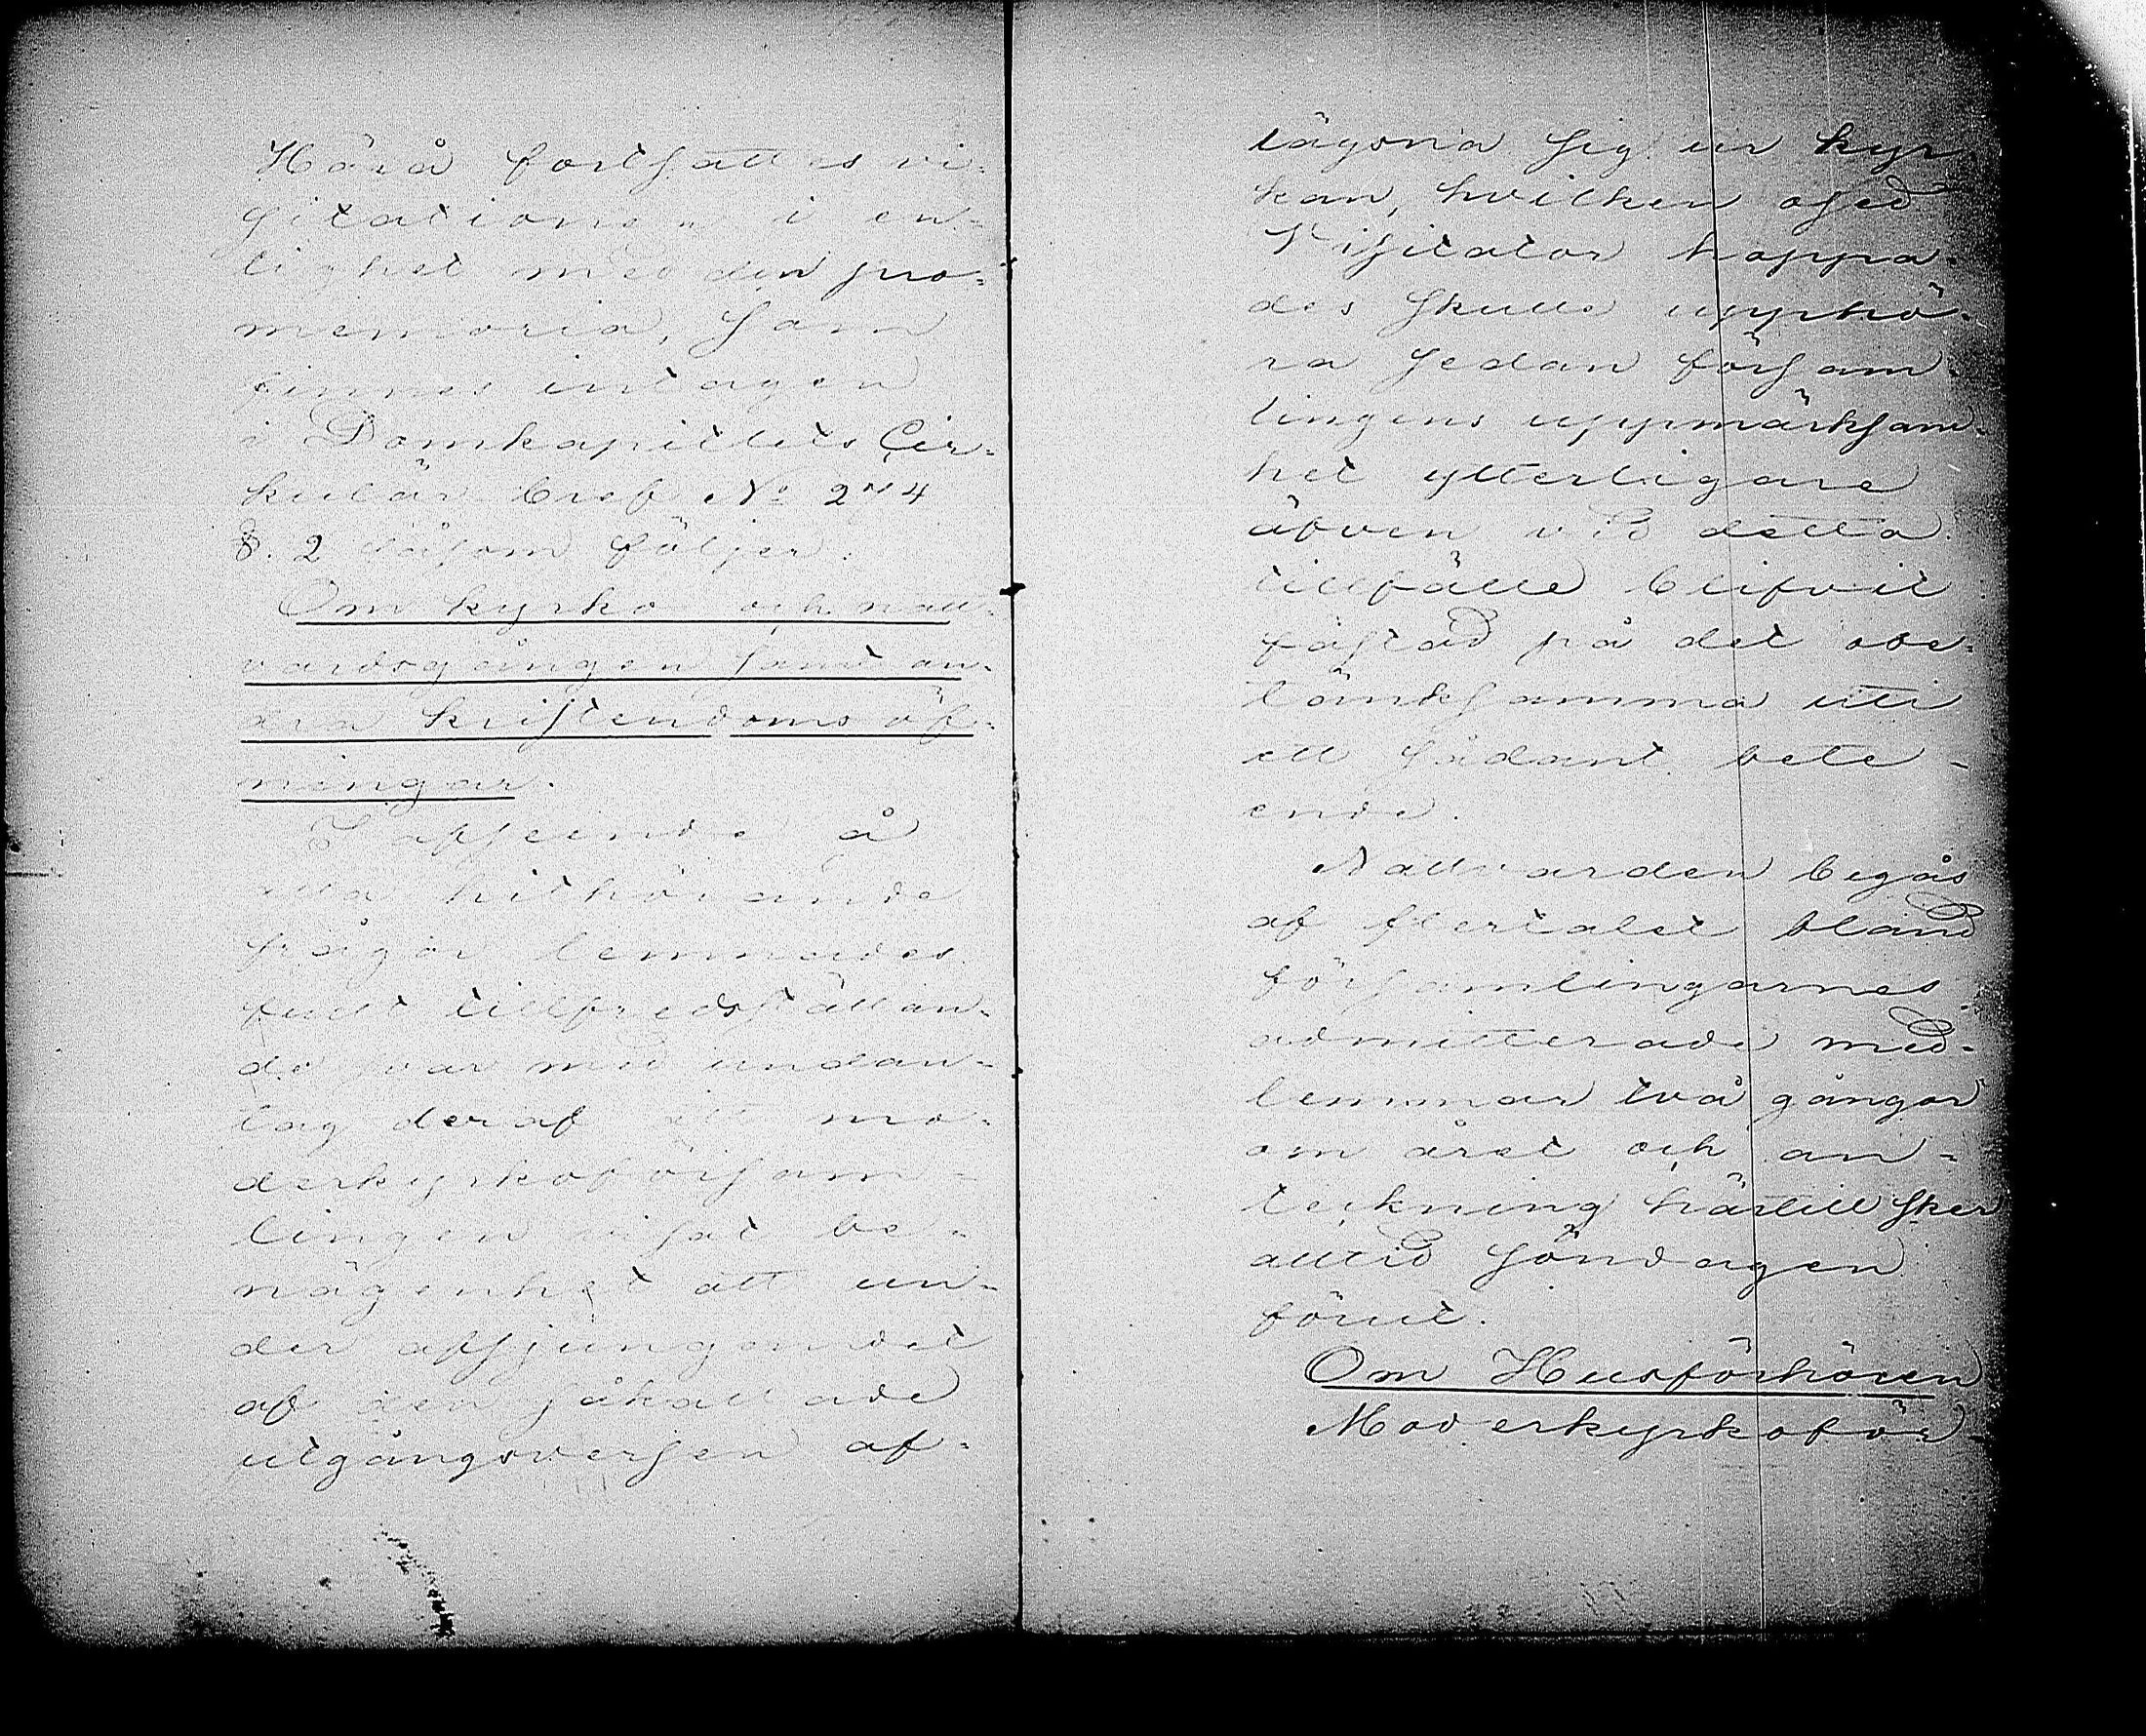 Härå fortsattes vi-
sitationen i en-
lighet med den pro-
memoria, som
finnes intagen
i Domkapitlets Cir-
kulär bref No 274
§. 2 såsom följer.
Om kyrko och natt-
vardsgången samt an-
dra kristendoms öf-
ningar.
I afseende å
alla hithörande
frågor lemnades
fullt tillfredsställan-
de svar med undan-
tag deraf att mo-
derkyrkoförsam-
lingen visat be-
nägenhet att un-
der afsjungandet
af den såkallade
utgångsversen af-
lägsna sig ur kyr
kan, hvilken osed
Visitator hoppa-
des skulle upphö-
ra sedan försam-
lingens uppmärksam-
het ytterligare
äfven vid detta
tillfälle blifvit
fästad på det obe-
tänksamma uti
ett sådant bete-
ende.
Nattvarden begås
af flertalet bland
församlingarnes
admitterade med-
lemmar två gångar
om året och an-
teckning härtill sker
alltid söndagen
förut.
Om Husförhören
Moderkyrkoför-